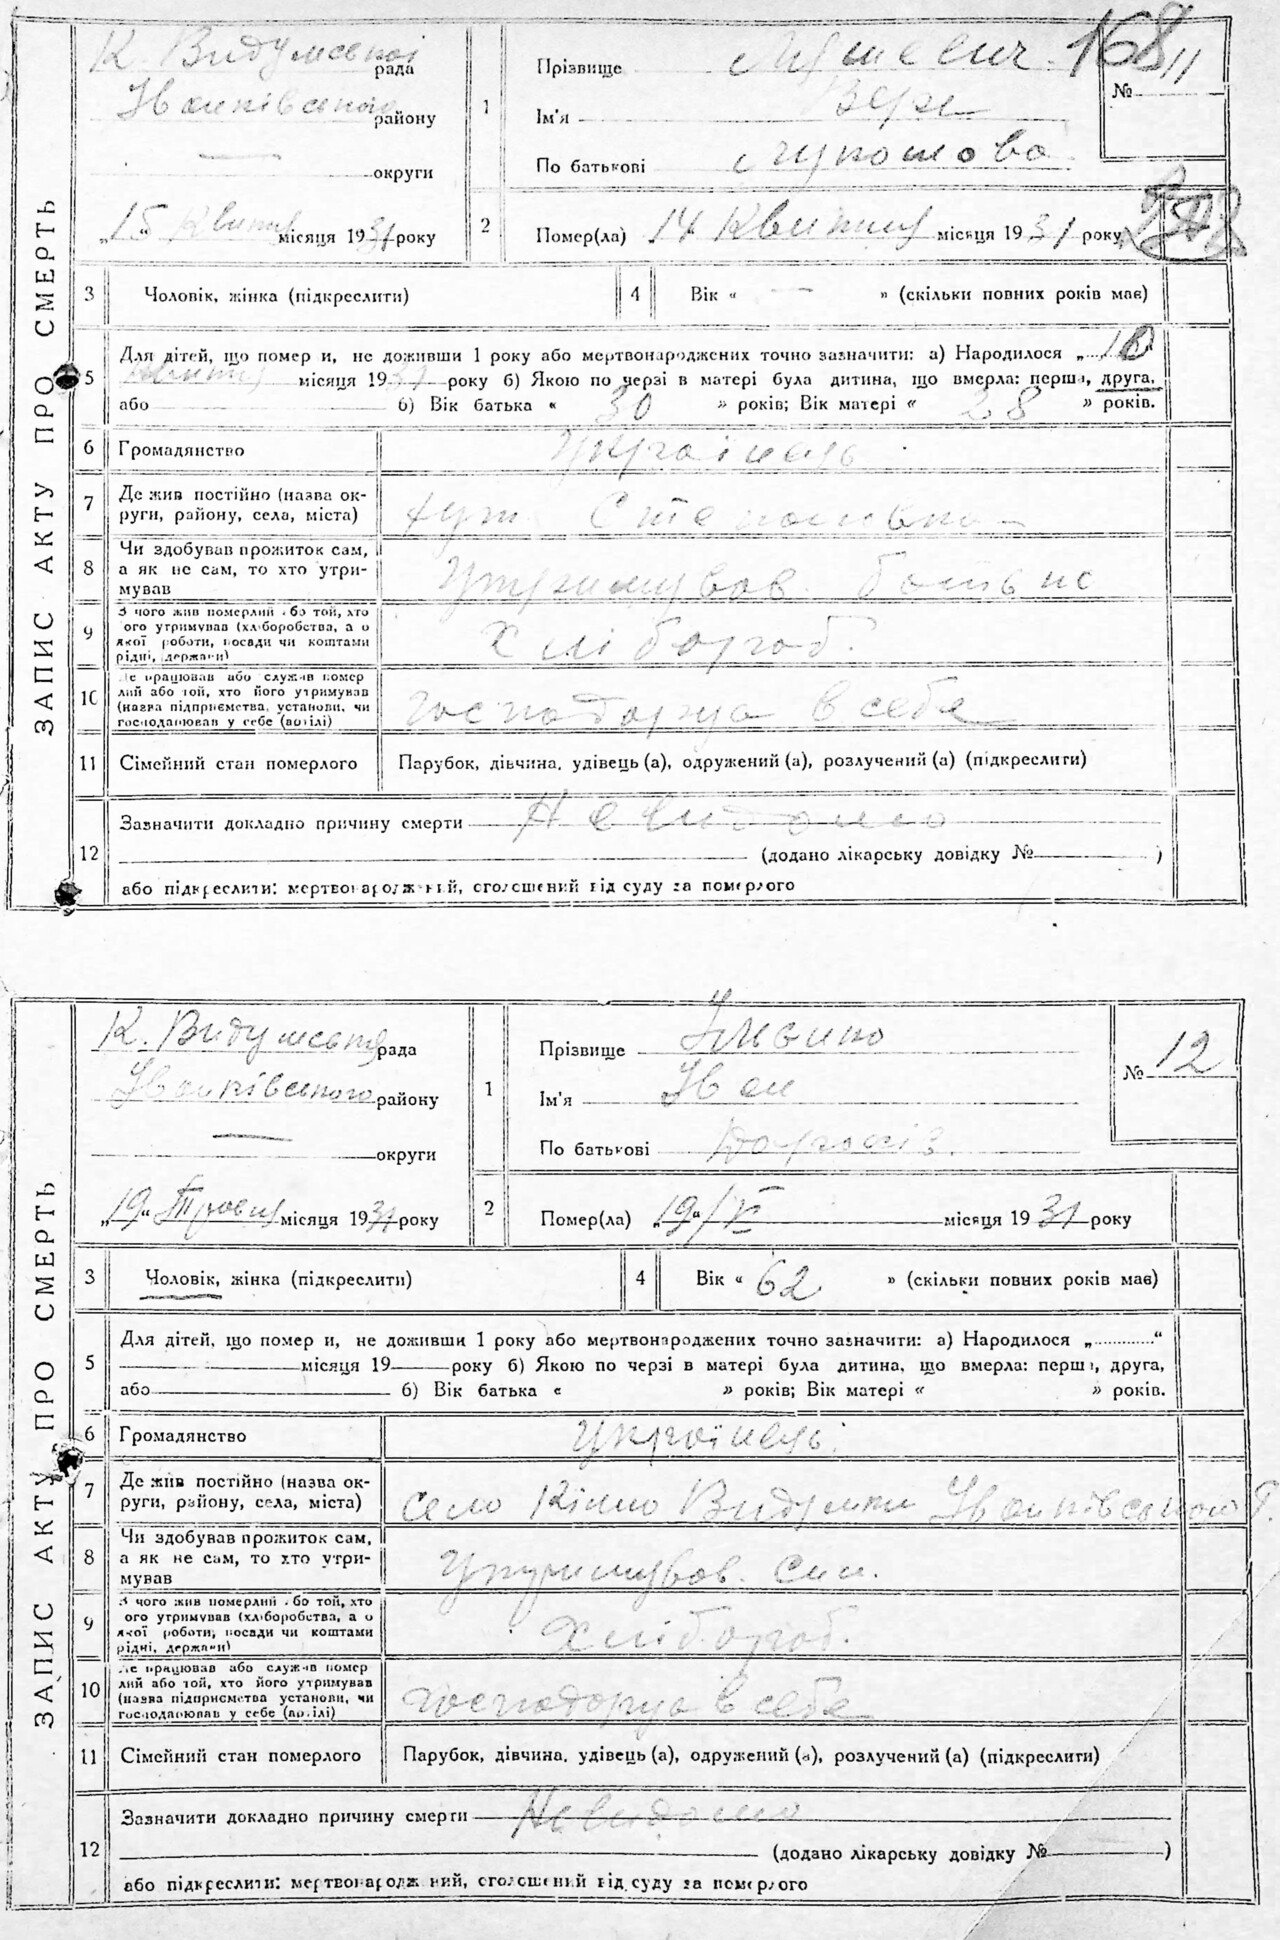 ЗАПИС АКТУ ПРО СМЕРТЬ
К. Видумської рада
Іванківського району
— округи
„15" Квітня місяця 1931 року
1
Прізвище
Ім'я Вера
По батькові
168
№ 11
2
Помер(ла) 14 Квитня місяця 1931 року
3
Чоловік, жінка (підкреслити)
4
Вік « — » (скільки повних років має)
5
Для дітей, що помер и, не доживши 1 року або мертвонароджених точно зазначити: а) Народилося „10
Квітня місяця 1931 року б) Якою по черзі в матері була дитина, що вмерла: перша, друга,
або б) Вік батька « 30 » років; Вік матері « 28 » років.
6
Громадянство Українець
7
Де жив постійно (назва ок-
руги, району, села, міста)
хут. Степанівка
8
Чи здобував прожиток сам,
а як не сам, то хто утри-
мував
Утримував батько
9
З чого жив померлий або той, хто
ого утримував (хліборобства, а о
якої роботи, посади чи коштами
рідні, держави)
Хлібороб.
10
Де працював або служив помер
лий або той, хто його утримував
(назва підприємства, установи, чи
господарював у себе (вдома)
господарува в себе
11
Сімейний стан померлого
Парубок, дівчина, удівець (а), одружений (а), розлучений (а) (підкреслити)
12
Зазначити докладно причину смерти Невидомо
(додано лікарську довідку № )
або підкреслити: мертвонароджений, оголошений від суду за померлого
ЗАПИС АКТУ ПРО СМЕРТЬ
К. Видумська рада
Іванківського району
— округи
„19" Травня місяця 1931 року
1
Прізвище
Ім'я Іван
По батькові
№ 12
2
Помер(ла) „19"/V місяця 1931 року
3
Чоловік, жінка (підкреслити)
4
Вік « 62 » (скільки повних років має)
5
Для дітей, що помер и, не доживши 1 року або мертвонароджених точно зазначити: а) Народилося „ "
місяця 19 року б) Якою по черзі в матері була дитина, що вмерла: перша, друга,
або б) Вік батька « » років; Вік матері « » років.
6
Громадянство Українець.
7
Де жив постійно (назва ок-
руги, району, села, міста)
село Кішно Видумки Іванківського Р.
8
Чи здобував прожиток сам,
а як не сам, то хто утри-
мував
Утримував. син.
9
З чого жив померлий або той, хто
ого утримував (хліборобства, а о
якої роботи, посади чи коштами
рідні, держави)
Хлібороб.
10
Де працював або служив помер
лий або той, хто його утримував
(назва підприємства установи, чи
господарював у себе (вдома)
господарува в себе
11
Сімейний стан померлого
Парубок, дівчина, удівець (а), одружений (а), розлучений (а) (підкреслити)
12
Зазначити докладно причину смерти Невидомо
(додано лікарську довідку № )
або підкреслити: мертвонароджений, оголошений від суду за померлого